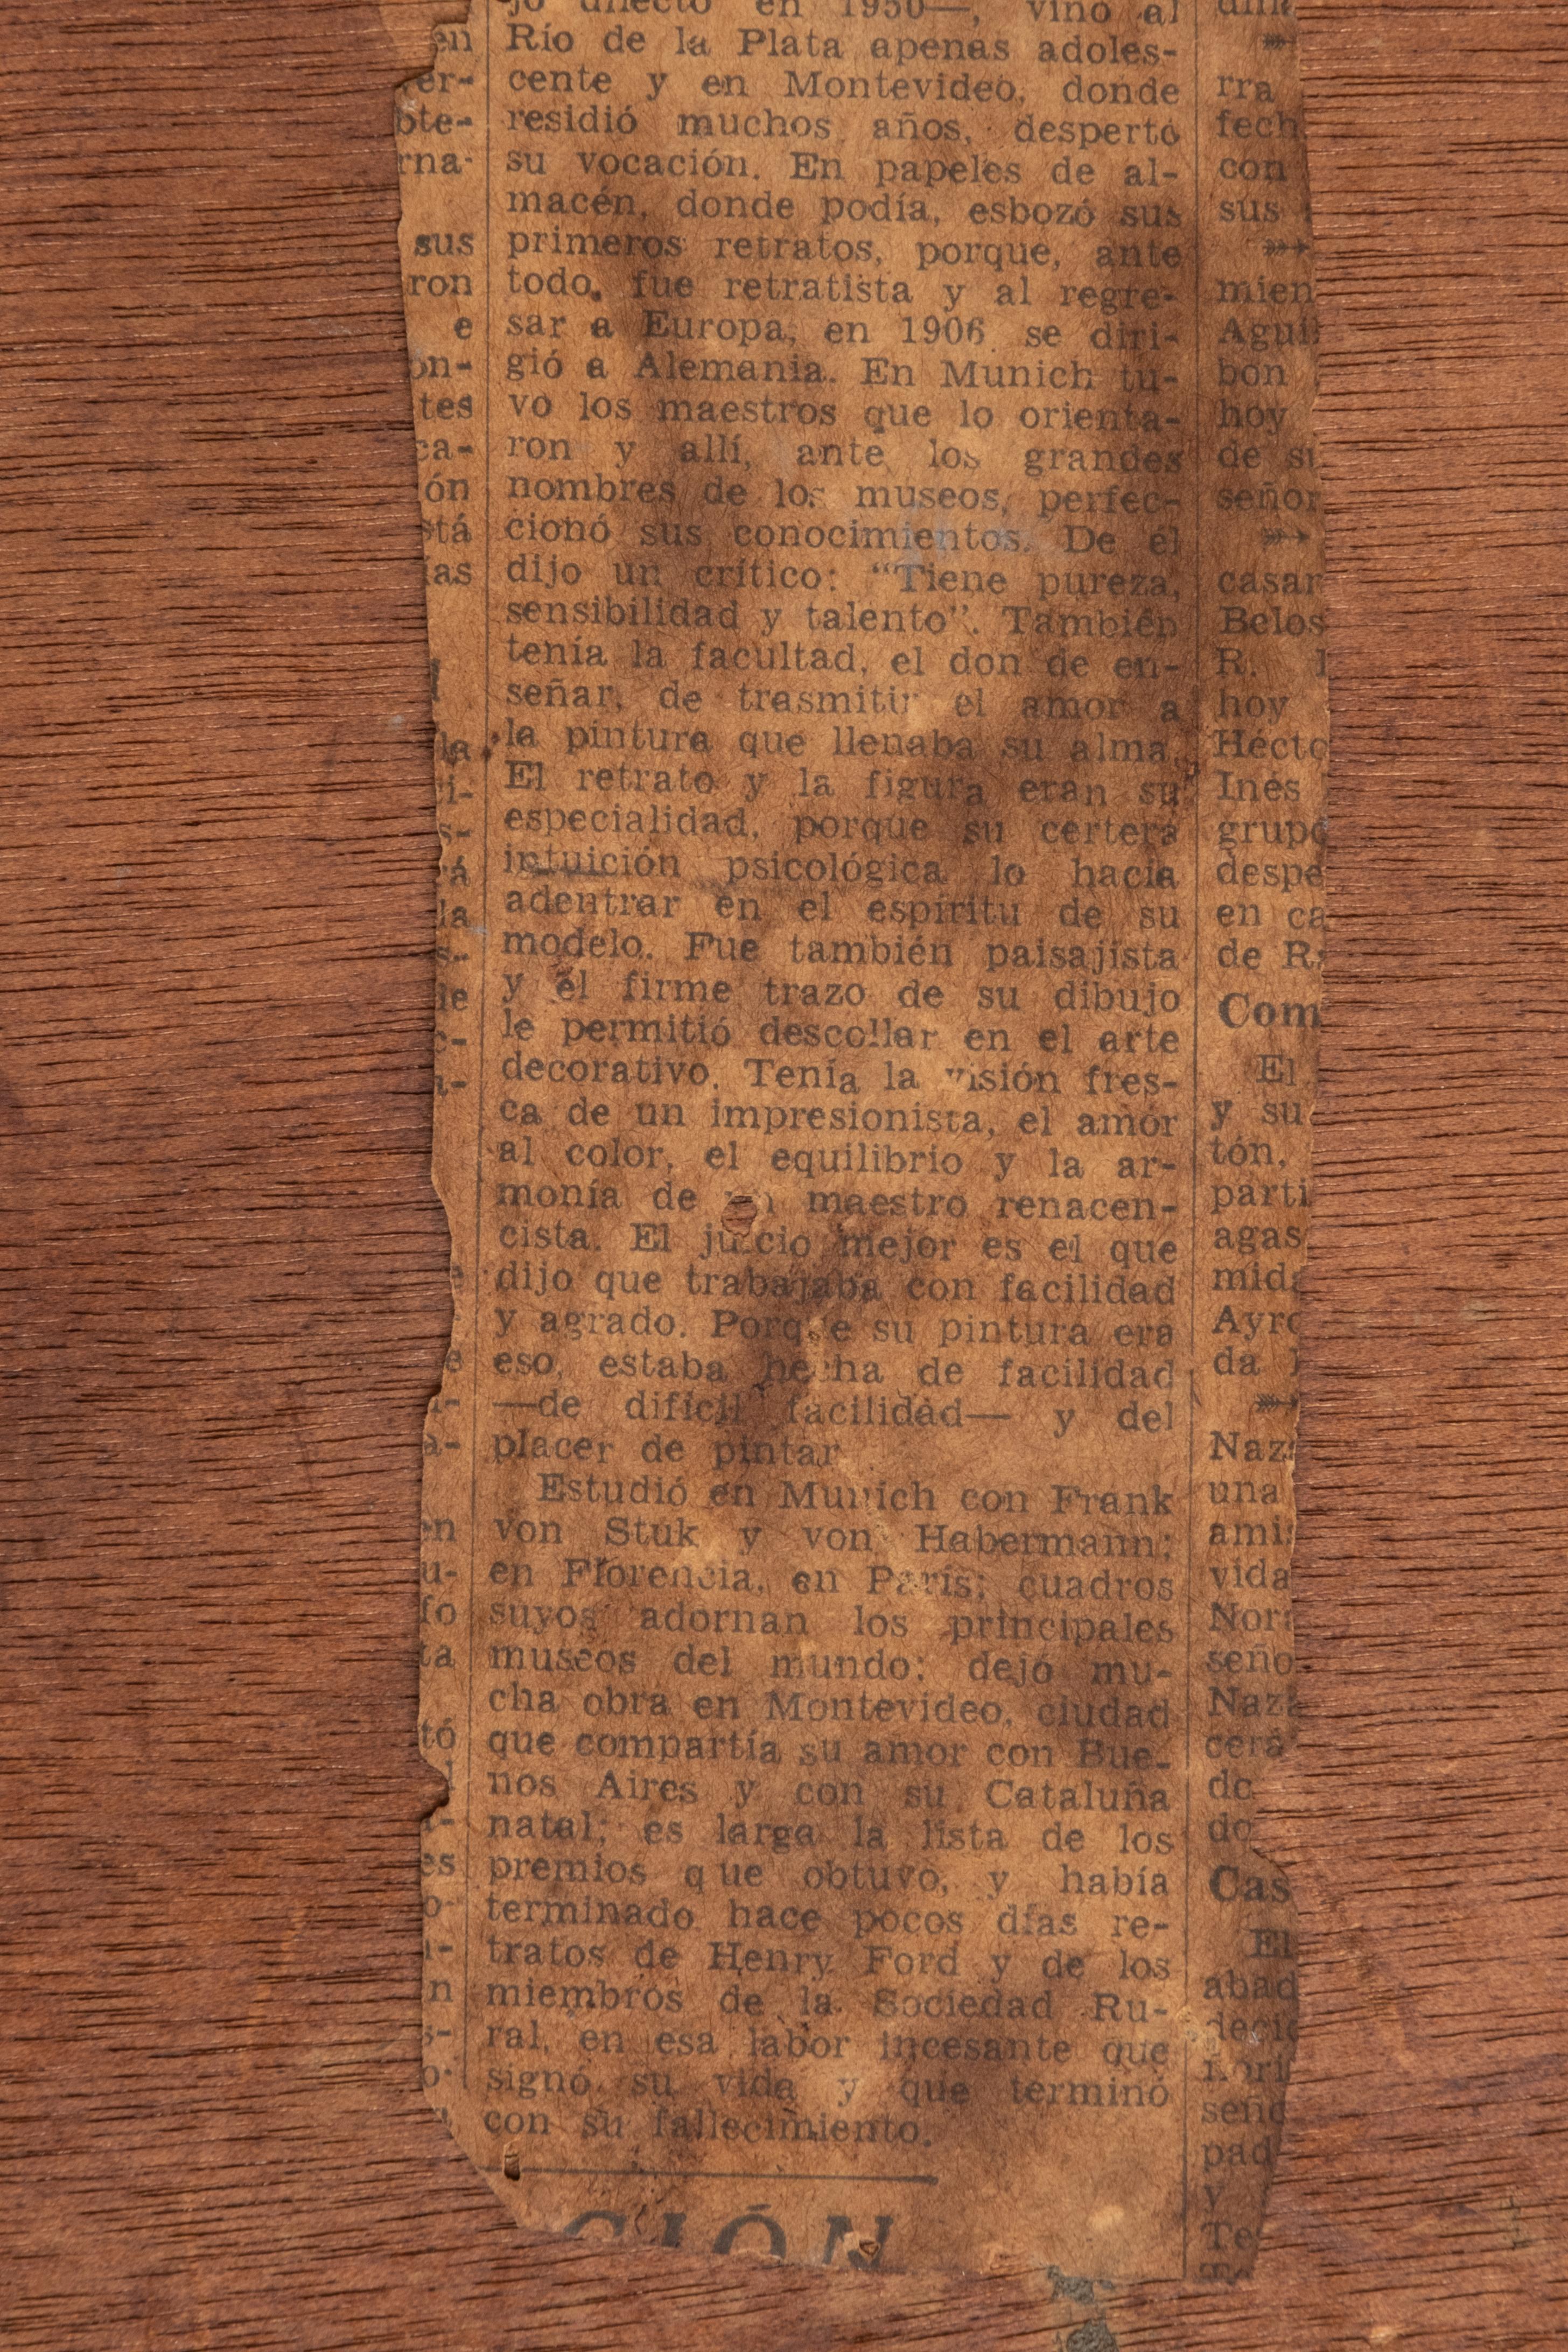 en
er-
ote-
rna-
sus
ron
e
on-
tes
ca-
ón
stá
as
la
i-
s-
á
la
s-
de
c-
a-
e
e
i-
a-
en
u-
fo
ta
tó
l
i-
es
o-
i-
n
s-
o-
en 1950—, vino al
Río de la Plata apenas adoles-
cente y en Montevideo, donde
residió muchos años, despertó
su vocación. En papeles de al-
macén, donde podía, esbozó sus
primeros retratos, porque, ante
todo, fue retratista y al regre-
sar a Europa, en 1906 se diri-
gió a Alemania. En Munich tu-
vo los maestros que lo orienta-
ron y allí, ante los grandes
nombres de los museos, perfec-
cionó sus conocimientos. De él
dijo un crítico: “Tiene pureza,
sensibilidad y talento”. También
tenía la facultad, el don de en-
señar, de trasmitir el amor a
la pintura que llenaba su alma.
El retrato y la figura eran su
especialidad, porque su certera
intuición psicológica lo hacía
adentrar en el espíritu de su
modelo. Fue también paisajista
y el firme trazo de su dibujo
le permitió descollar en el arte
decorativo. Tenía la visión fres-
ca de un impresionista, el amor
al color, el equilibrio y la ar-
monía de un maestro renacen-
cista. El juicio mejor es el que
dijo que trabajaba con facilidad
y agrado. Porque su pintura era
eso, estaba hecha de facilidad
—de difícil facilidad— y del
placer de pintar.
Estudió en Munich con Frank
von Stuk y von Habermann;
en Florencia, en París; cuadros
suyos adornan los principales
museos del mundo; dejó mu-
cha obra en Montevideo, ciudad
que compartía su amor con Bue-
nos Aires y con su Cataluña
natal; es larga la lista de los
premios que obtuvo, y había
terminado hace pocos días re-
tratos de Henry Ford y de los
miembros de la Sociedad Ru-
ral, en esa labor incesante que
signó su vida y que terminó
con su fallecimiento.
CIÓN
rra
fech
con
sus
mien
Agui
bon
hoy
de su
señor
casar
Belos
R.
hoy
Hécto
Inés
grupo
despe
en ca
de R
Com
El
y su
tón,
parti
agas
mida
Ayro
da
Naz
una
amis
vida
Nor
seño
Naz
cerá
do
do
Cas
El
abad
decid
seño
pad
y
Te